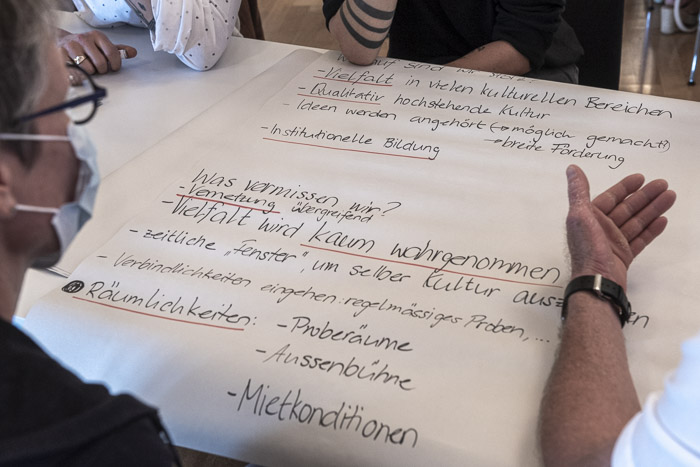 auf sind wir
- Vielfalt in vielen kulturellen Bereichen
- Qualitativ hochstehende Kultur
- Ideen werden angehört (→ möglich gemacht!)
→ breite Förderung
- Institutionelle Bildung
Was vermissen wir?
- Vernetzung übergreifend
- Vielfalt wird kaum wahrgenommen
- zeitliche „Fenster", um selber Kultur
- Verbindlichkeiten eingehen: regelmässiges Proben, ...
Räumlichkeiten: - Proberäume
- Aussenbühne
- Mietkonditionen